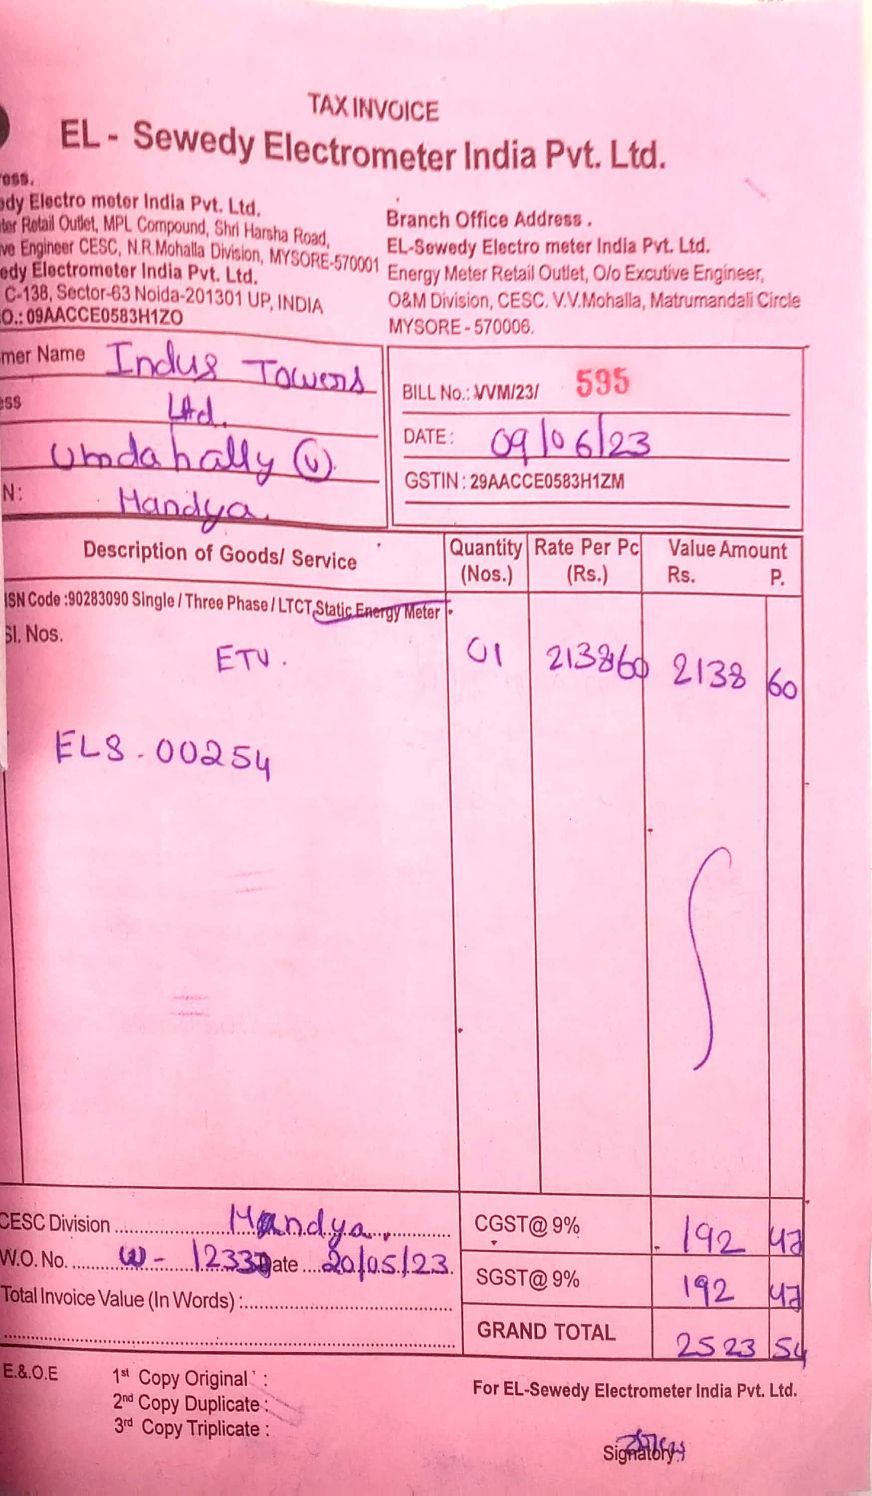 TAX INVOICE
EL - Sewedy Electrometer India Pvt. Ltd.
ess.
dy Electro meter India Pvt. Ltd.
ter Retail Outlet, MPL Compound, Shri Harsha Road,
ve Engineer CESC, N.R.Mohalla Division, MYSORE-570001
edy Electrometer India Pvt. Ltd.
C-138, Sector-63 Noida-201301 UP, INDIA
O.: 09AACCE0583H1ZO
Branch Office Address .
EL-Sewedy Electro meter India Pvt. Ltd.
Energy Meter Retail Outlet, O/o Excutive Engineer,
O&M Division, CESC. V.V.Mohalla, Matrumandali Circle
MYSORE - 570006.
mer Name Indus Towers
ess Ltd.
Umdahally (V).
N: Mandya
BILL No.: VVM/23/ 595
DATE: 09/06/23
GSTIN : 29AACCE0583H1ZM
Description of Goods/ Service Quantity (Nos.) Rate Per Pc (Rs.) Value Amount Rs. P.
SN Code :90283090 Single / Three Phase / LTCT Static Energy Meter
Sl. Nos.
ETV. 01 213860 2138 60
ELS - 00254
CESC Division Mandya. CGST@ 9% 192 47
W.O. No. W - 1233 Date 20/05/23 SGST@ 9% 192 47
Total Invoice Value (In Words) :
GRAND TOTAL 2523 54
E.&.O.E
1st Copy Original :
2nd Copy Duplicate :
3rd Copy Triplicate :
For EL-Sewedy Electrometer India Pvt. Ltd.
Signatory